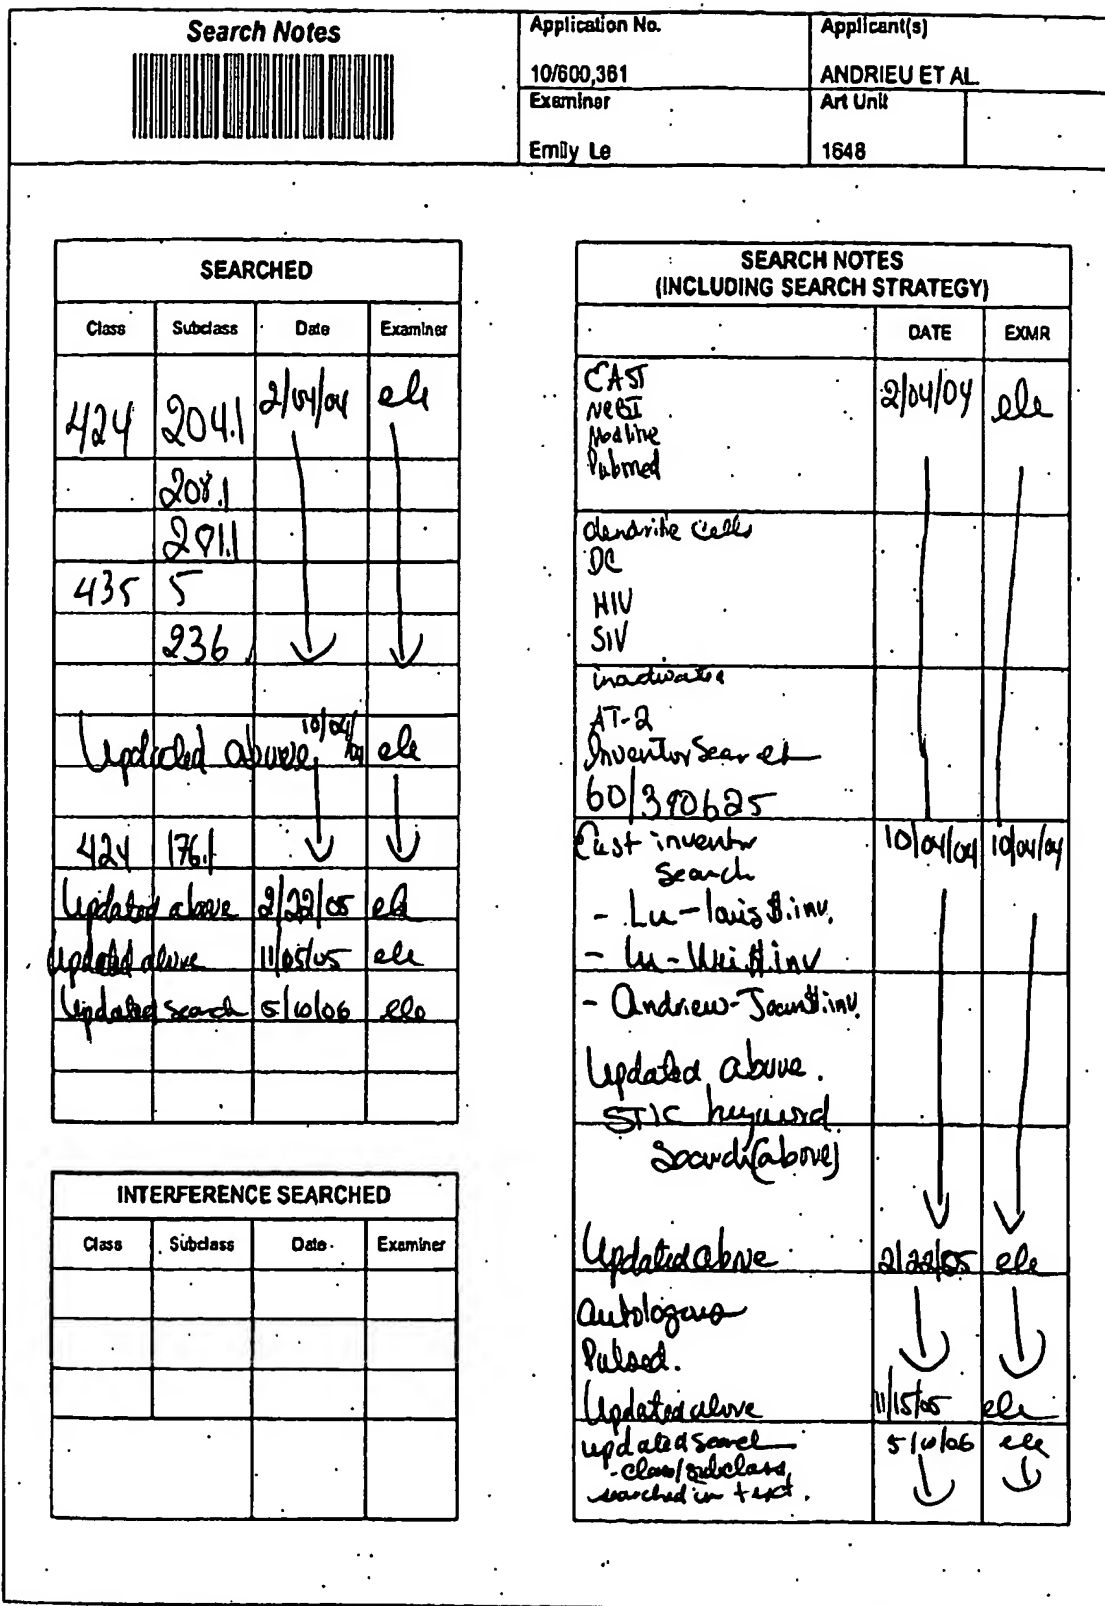 Search Notes
Application No.
Applicant(s)
10/600,361
ANDRIEU ET AL.
Examiner
Art Unit
Emily Le
1648
SEARCHED
Class Subclass Date Examiner
424 204.1 2/04/04 ele
208.1
201.1
435 5
236
Updated above 10/04/04 ele
424 176.1
Updated above 2/22/05 ele
Updated above 11/05/05 ele
Updated search 5/10/06 ele
INTERFERENCE SEARCHED
Class Subclass Date Examiner
SEARCH NOTES
(INCLUDING SEARCH STRATEGY)
DATE EXMR
EAST 2/04/04 ele
NCBI
Medline
Pubmed
dendritic cells
DC
HIV
SIV
inactivated
AT-2
Inventor Search
60/390625
East inventor 10/04/04 10/04/04
search
- Lu-louis$.inv.
- Lu-Wei$.inv
- Andrieu-Jean$.inv.
Updated above.
STIC keyword
Search (above)
Updated above 2/22/05 ele
autologous
Pulsed.
Updated above 11/15/05 ele
updated search 5/10/06 ele
- class/subclass
searched in text.